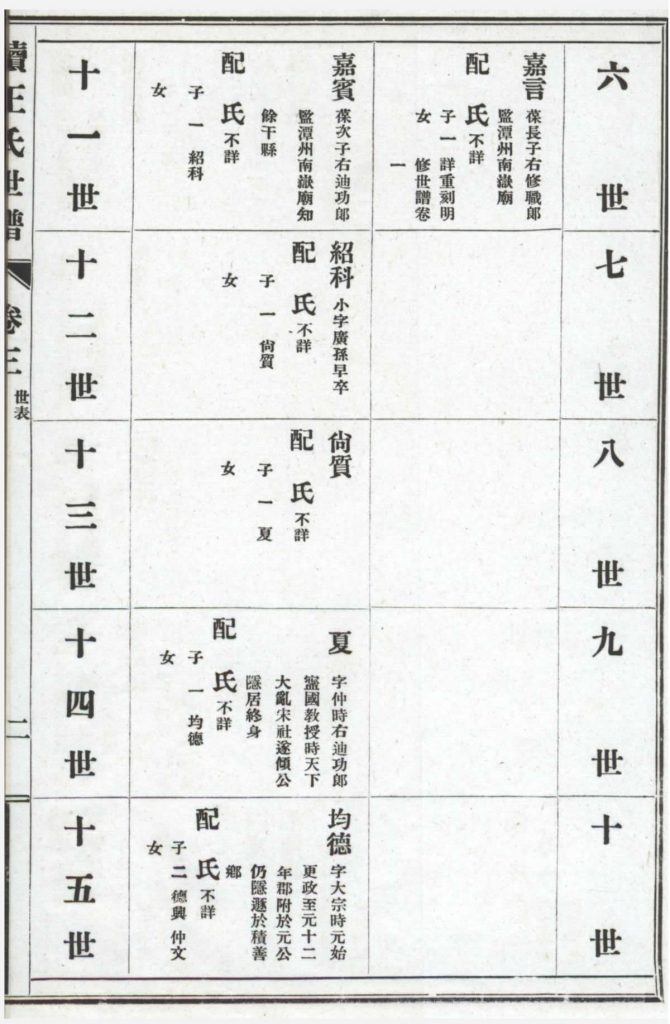 六世
七世
八世
九世
十世
嘉言
葆長子右修職郎
監潭州南嶽廟
配
氏不詳
子一詳重刻明
女
修世譜卷
一
嘉賓
葆次子右迪功郎
監潭州南嶽廟知
餘干縣
配
氏不詳
子一紹科
女
紹科
小字廣孫早卒
配
氏不詳
子一尙質
女
尙質
配
氏不詳
子一夏
女
夏
字仲時右迪功郎
寧國教授時天下
大亂宋社遂傾公
隱居終身
配
氏不詳
子一均德
女
均德
字大宗時元始
更政至元十二
年郡附於元公
仍隱遯於積善
鄉
配
氏不詳
子二德興 仲文
女
十一世
十二世
十三世
十四世
十五世
續王氏世譜
卷三
世表
二